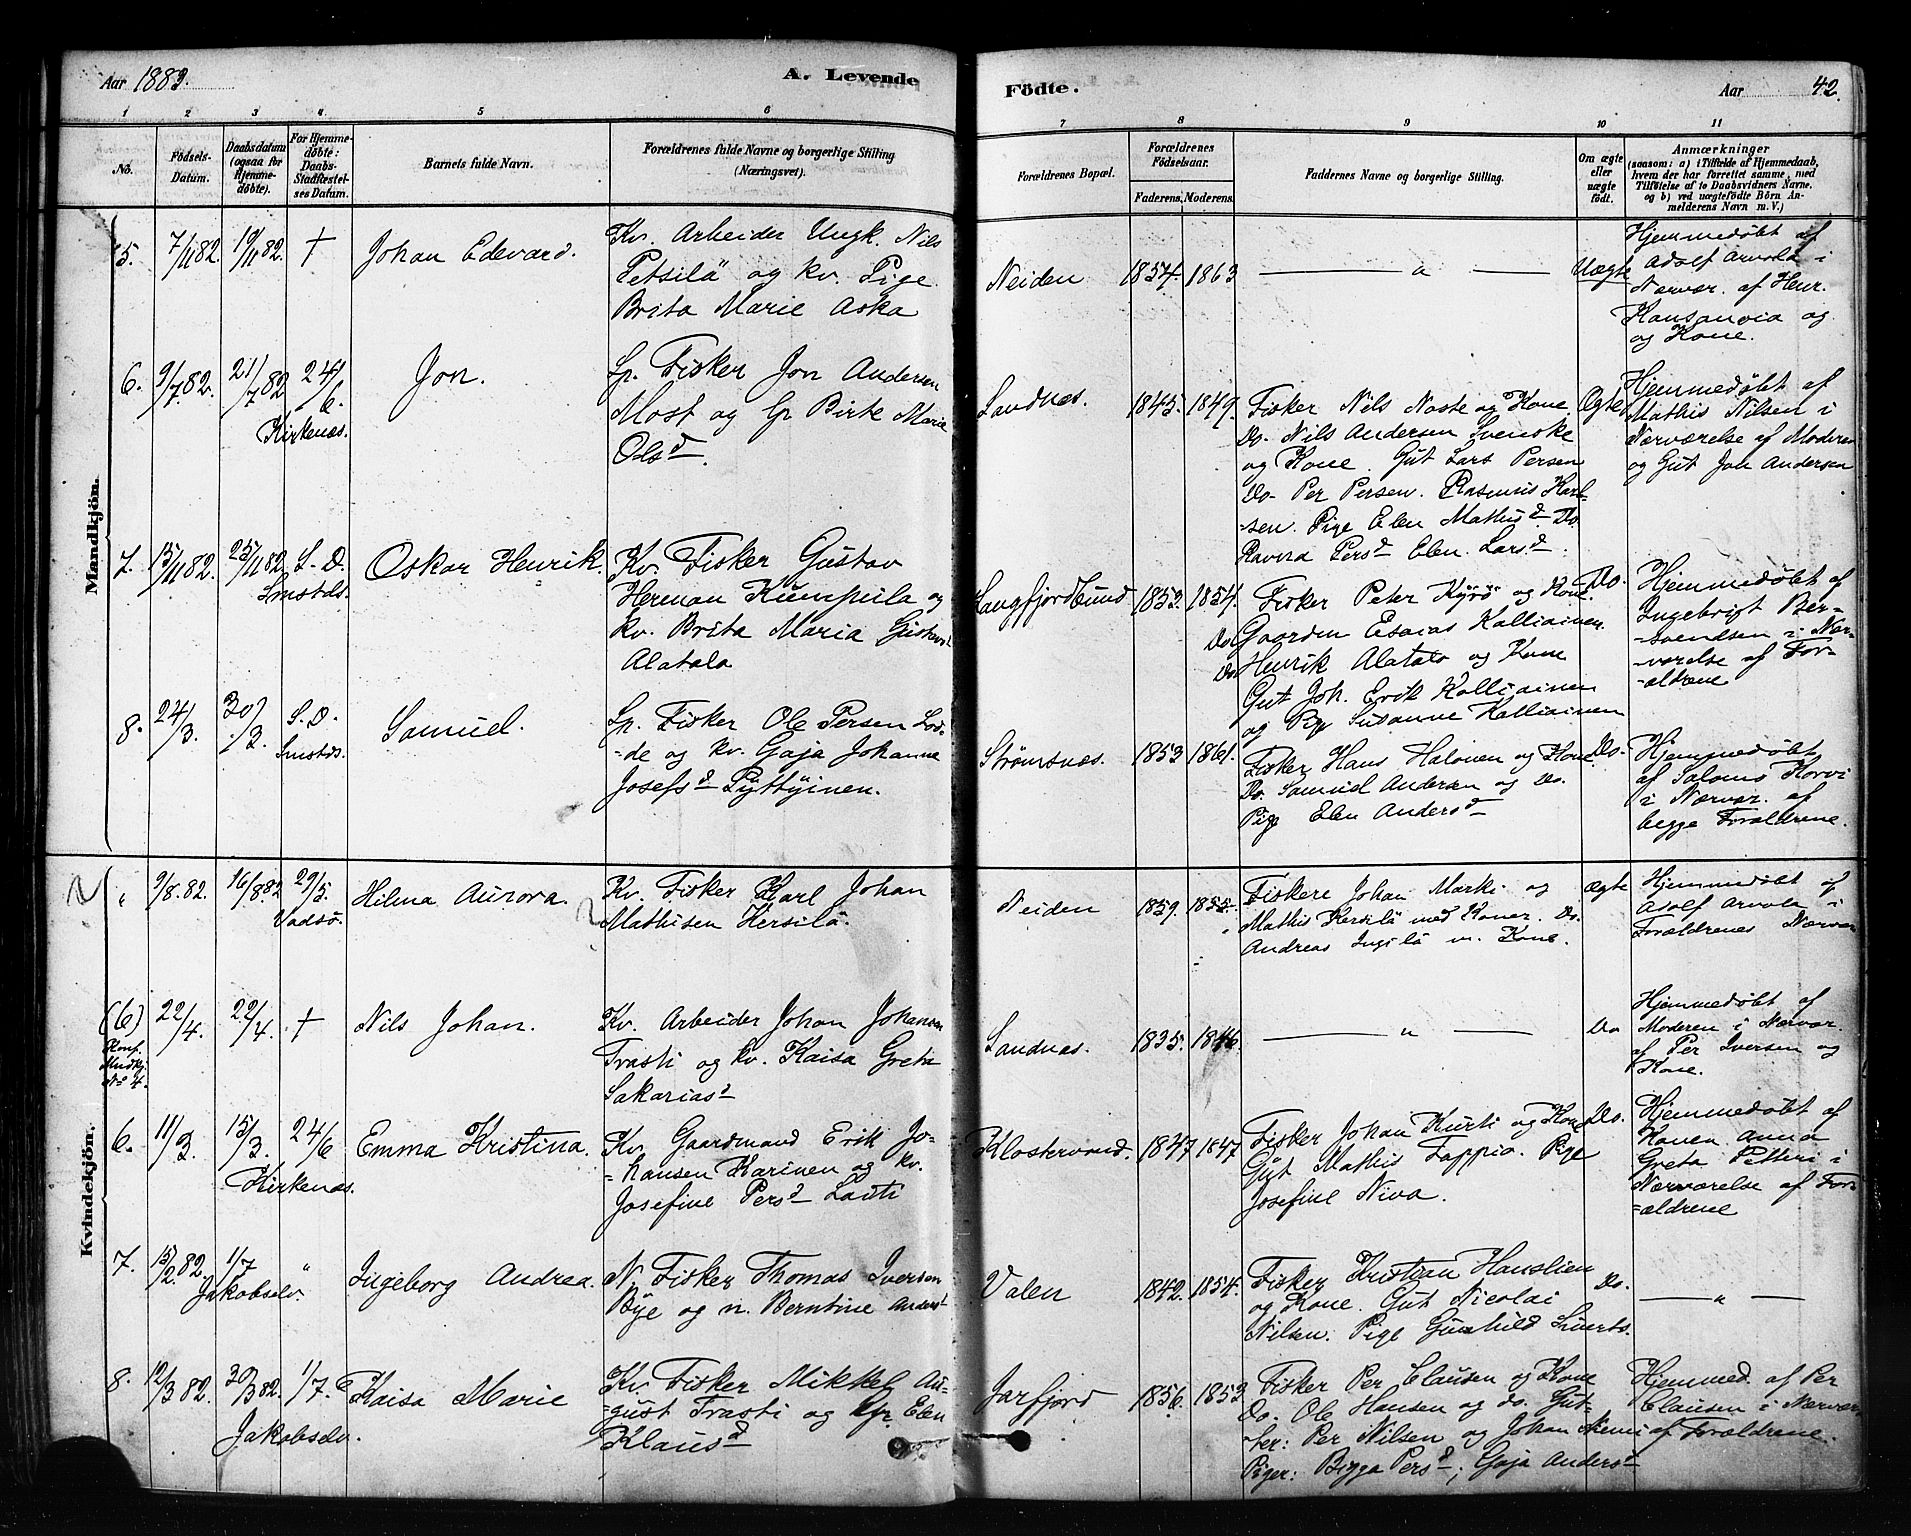 Aar 1883.
A. Levende
Födte.
Aar
42.
1 2 3 4 5 6 7 8 9 10 11
No.
Födsels-
Datum.
Daabsdatum
(ogsaa for
Hjemme-
døbte).
For Hjemme-
døbte:
Daabs-
Stadfæstel-
ses Datum.
Barnets fulde Navn.
Forældrenes fulde Navne og borgerlige Stilling
(Næringsvei).
Forældrenes Bopæl.
Forældrenes
Födselsaar.
Faderens.
Moderens.
Faddernes Navne og borgerlige Stilling.
Om ægte
eller
uægte
født.
Anmærkninger
(saasom: a) i Tilfælde af Hjemmedaab,
hvem der har forrettet samme, med
Tilføielse af to Daabsvidners Navne,
og b) ved uægtefødte Börn An-
melderens Navn m. V.)
Mandkjön.
5.
7/11 82.
19/11 82.
†
Johan Edevard.
Kv. Arbeider Ungk. Nils
Petsilä og kv. Pige
Brita Marie Aska
Neiden
1854.
1863
— " —
Uægte
Hjemmedøbt af
Adolf Arvola i
Nærvær. af Henr.
og
og Kone.
6.
9/7 82.
21/7 82
24/6.
Kirkenæs.
Jon.
Lp. Fisker Jon Andersen
Most og lp Birte Marie
Olsd.
Sandnæs.
1845.
1849.
Fisker Nils Noste og Kone
Do. Nils Andersen Svenske
og Kone. Gut Lars Persen
Do. Per Persen. Rasmus Karl-
sen. Pige Elen Mathisd. Do.
Ravna Persd Elen Larsd.
Ægte
Hjemmedøbt af
Mathis Nilsen i
Nærværelse af Moderen
og Gut Joh Andersen
7.
15/11 82.
25/11 82.
S. D.
Smstds.
Oskar Henrik.
Kv. Fisker Gustav
Herman Kumpula og
kv. Brita Maria Gustavsd
Alatalo
Langfjordbund
1853.
1854.
Fisker Peter Kyrö og Kone.
Do Gaardm Esaias Kalliainen.
Do Henrik Alatalo og Kone
Gut Joh. Erik Kalliainen
og Pige Susanne Kalliainen
Do.
Hjemmedøbt af
Ingebrigt Ber-
-svendsen i Nær-
-værelse af For-
-ældrene
8.
24/3.
30/3.
S. D.
Smstds.
Samuel.
Lp. Fisker Ole Persen Lad-
-de og kv. Gaja Johanne
Josefsd Pyttyinen.
Strømsnæs.
1853
1861.
Fisker Hans Halonen og Kone
Do Samuel Andersen og Do.
Pige Elen Andersd
Do.
Hjemmedøbt
af Salomo Korvi
i Nærvær. af
begge Forældrene.
Kvindekjön.
"
9/8. 82.
16/8. 82
29/5.
Vadsö.
Hilma Aurora.
Kv. Fisker Karl Johan
Mathisen Kersilä.
Neiden
1859.
1855.
Fiskere Johan Marki og
Mathis Kersilä med Koner. Do.
Andreas Ingilä m. Kone.
Ægte
Hjemmedøbt af
Adolf Arvola i
Forældrenes Nærvær
(6)
Konf.
Mndkj.
No 4.
22/4.
22/4.
†
Nils Johan.
Kv. Arbeider Johan Johansen
Trasti og kv. Kaisa Greta
Sakariasd
Sandnæs.
1835.
1846.
— " —
Do
Hjemmedøbt af
Moderen i Nærvær.
af Per Iversen og
Kone.
6.
11/3.
15/3.
24/6
Kirkenæs.
Emma Kristina.
Kv. Gaardmand Erik Jo-
=hansen Karinen og kv.
Josefine Persd Lauti
Klostervand.
1847
1847
Fisker Johan Kurti og Kone
Gut Mathis Tappio. Pige
Josefine Niva.
Do.
Hjemmedøbt af
Konen Anna
Greta Petteri i
Nærværelse af For-
=ældrene
7.
15/2. 82.
1/7
"
Jakobselv.
Ingeborg Andrea.
N. Fisker Thomas Iversen
Bye og n. Berntine Andersd
Valen
1842.
1854.
Fisker Kristian Hanslien
og Kone. Gut Nicolai
Nilsen. Pige Gunhild Sivertsd.
Do.
— " —
8.
12/3 82.
30/3 82.
1/7.
Jakobselv.
Kaisa Marie
Kv. Fisker Mikkel Au-
=gust Trasti og lp. Elen
Klausd
Jarfjord
1856.
1853
Fisker Per Clausen og Kone
Do. Ole Hansen og do. Gut-
-ter: Per Nilsen og Johan Niemi
Piger: Bigga Persd; Gaja Andersd
Hjemmed. af Per
Clausen i Nærvær
af Forældrene.